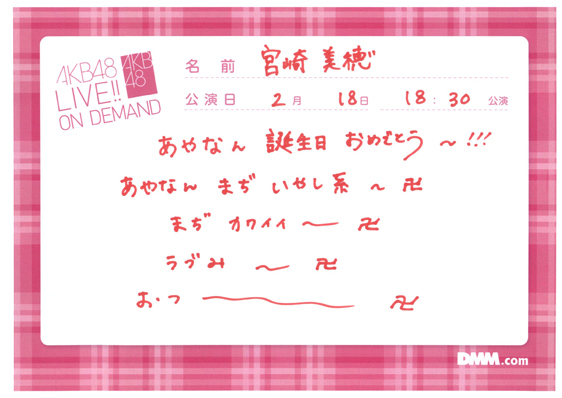 AKB48
LIVE!!
ON DEMAND
AKB
48
名 前 宮崎 美穂
公演日 2月 18日 18:30 公演
あやなん 誕生日 おめでとう ~ !!!
あやなん まぢ いやし系 ~ 卍
まぢ カワイイ ~ 卍
らづみ ~ 卍
お、つ ~ 卍
DMM.com